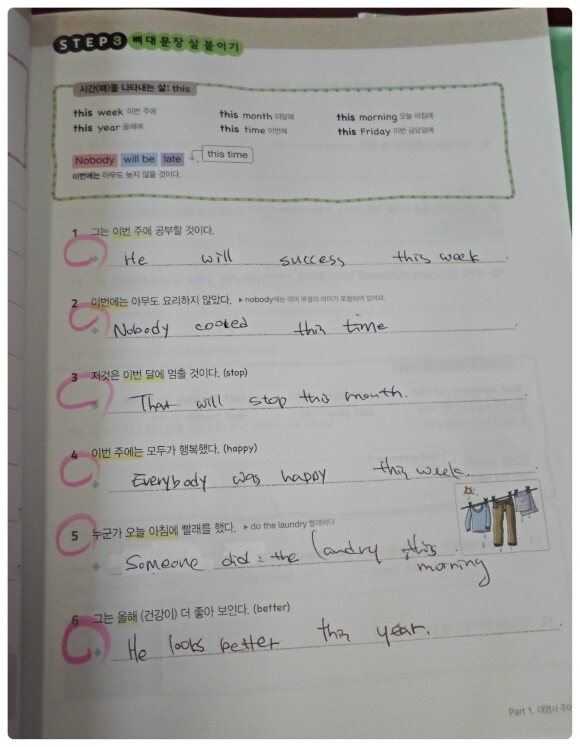 STEP 3 뼈대 문장 살 붙이기
시간(때)을 나타내는 살: this
this week 이번 주에 this month 이달에 this morning 오늘 아침에
this year 올해에 this time 이번에 this Friday 이번 금요일에
Nobody will be late this time
이번에는 아무도 늦지 않을 것이다.
1 그는 이번 주에 공부할 것이다.
He will success this week.
2 이번에는 아무도 요리하지 않았다. ▸ nobody에는 이미 부정의 의미가 포함되어 있어요.
Nobody cooked this time
3 저것은 이번 달에 멈출 것이다. (stop)
That will stop this month.
4 이번 주에는 모두가 행복했다. (happy)
Everybody was happy this week.
5 누군가 오늘 아침에 빨래를 했다. ▸ do the laundry 빨래하다
Someone did the landry this
morning
6 그는 올해 (건강이) 더 좋아 보인다. (better)
He looks better this year.
Part 1. 대명사 주어